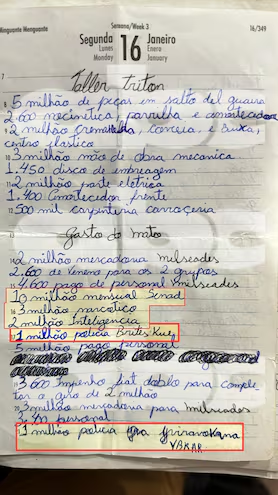 Minguante Menguante
Semana/Week 3
16/349
Segunda
Lunes
Monday
16
Janeiro
Enero
January
7
Taller triton
8 5 milhão de peças em salto del guaira
2.600 necinetica, parrilha e amortecedor
9 2 milhão cremalha, correia, e buxa,
centro plastico
10 3 milhão mão de obra mecanica
1.450 disco de embreagem
11 2 milhão parte eletrica
1.400 Amortecedor frente
12 500 mil carpinturia carroçeria
13
Gasto do mato
14 2 milhão mercadoria milseades
2.600 de Veneno para os 2 grupos
15 4,600 pago de personal milseades
10 milhão mensual Senad
16 3 milhão narcotico
2 milhão Inteligencia
1 milhão policia Brites Kuey
5 milhão pago personal
3600 Impenho fiat doblo para comple
tar a giro de 2 milhão
3 milhão mercadoria para milseades
personal
1 milhão policia
YAKAR